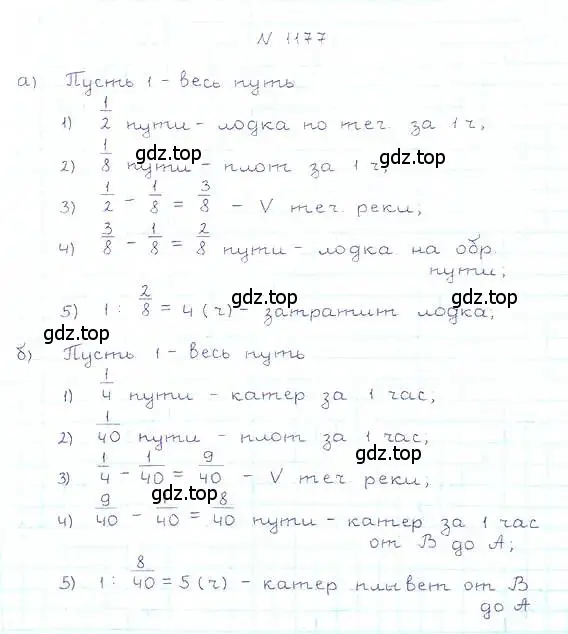 N 1177
а) Пусть 1 - весь путь
1) 1/2 пути - лодка по теч. за 1 ч,
2) 1/8 пути - плот за 1 ч,
gdz.top
gdz.top
3) 1/2 - 1/8 = 3/8 - V теч. реки;
4) 3/8 - 1/8 = 2/8 пути - лодка на обр.
пути;
gdz.top
5) 1 : 2/8 = 4 (ч) - затратит лодка;
gdz.top
gdz.top
gdz.top
б) Пусть 1 - весь путь
1) 1/4 пути - катер за 1 час,
2) 1/40 пути - плот за 1 час;
gdz.top
3) 1/4 - 1/40 = 9/40 - V теч. реки;
gdz.top
4) 9/40 - /40 = 8/40 пути - катер за 1 час
от В до А;
gdz.top
5) 1 : 8/40 = 5 (ч) - катер плывет от В
до А
gdz.top